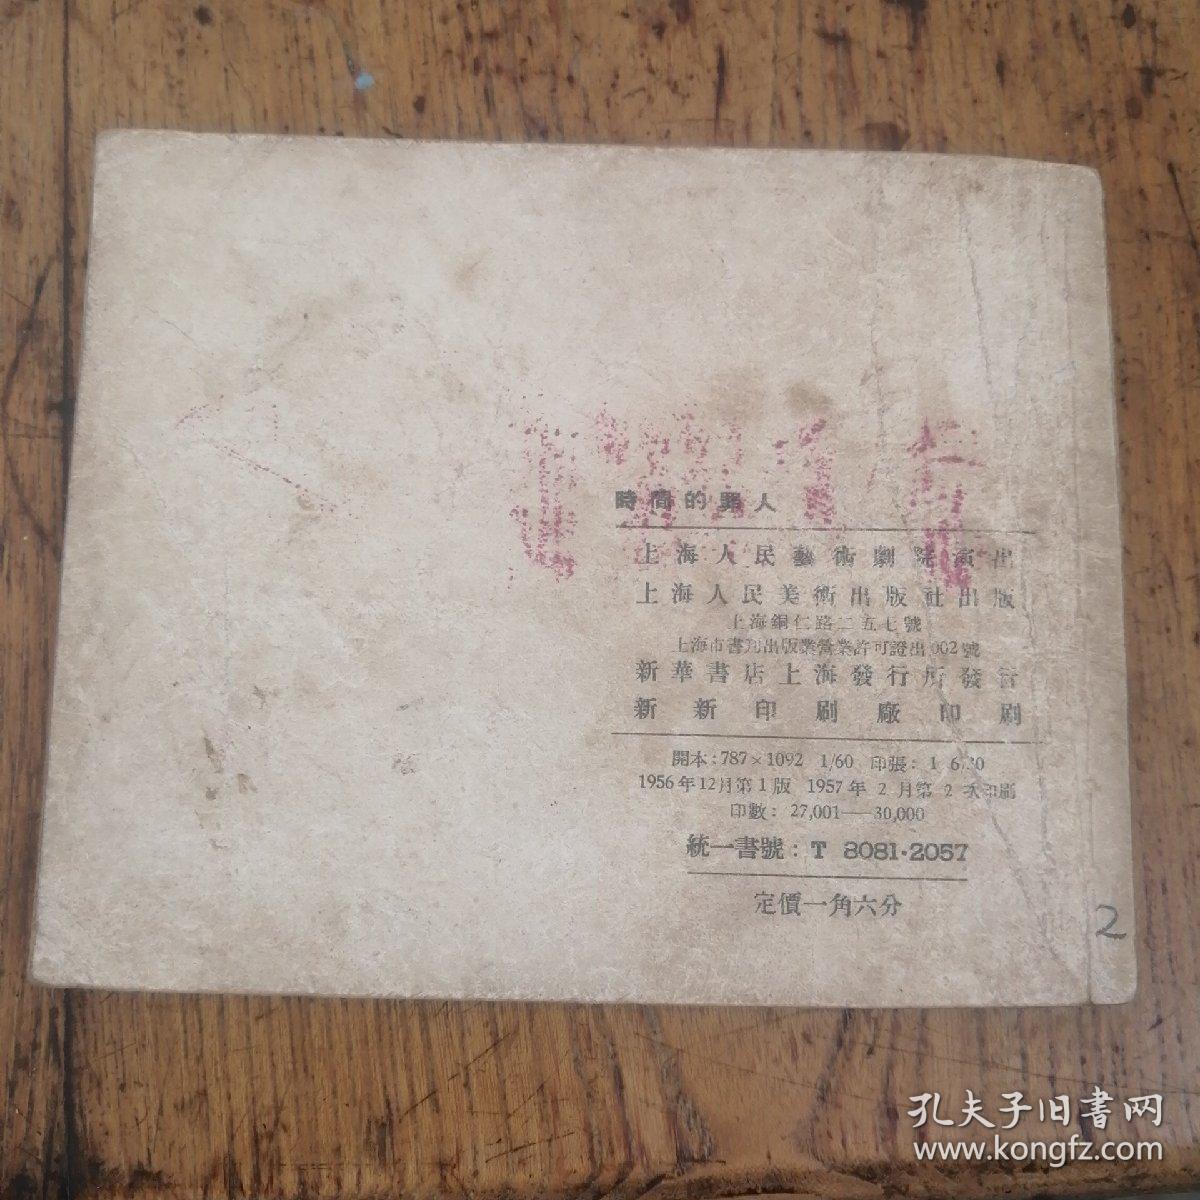 時間的罪人
上海人民藝術劇院演出
上海人民美術出版社出版
上海銅仁路二五七號
上海市書刊出版業營業許可證出002號
新華書店上海發行所發行
新新印刷廠印刷
開本:787×1092 1/60 印張:1 6/30
1956年12月第1版 1957年2月第2次印刷
印數:27,001—30,000
統一書號:T 8081·2057
定價一角六分
2
孔夫子旧書网
www.kongfz.com